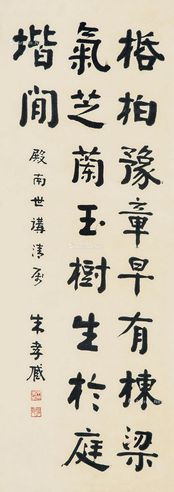 栝柏豫章早有棟梁
氣芝蘭玉樹生於庭
堦間
殿南世講清屬
朱孝臧